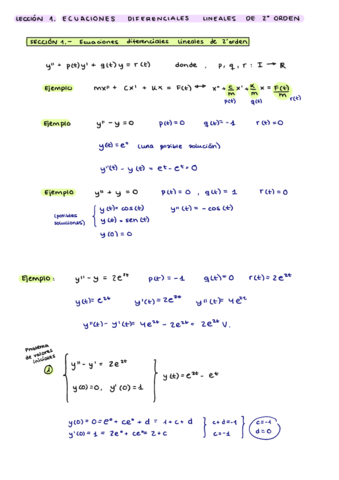 LECCIÓN 1. ECUACIONES DIFERENCIALES LINEALES DE 2º ORDEN
SECCIÓN 1.- Ecuaciones diferenciales lineales de 2º orden
y'' + p(t)y' + q(t)y = r(t) donde , p, q, r : I → R
Ejemplo mx'' + cx' + kx = F(t) ↔ x'' + c/m x' + k/m x = F(t)/m
p(t) q(t) r(t)
Ejemplo y'' - y = 0 p(t) = 0 q(t) = -1 r(t) = 0
y(t) = eᵗ (una posible solución)
y''(t) - y(t) = eᵗ - eᵗ = 0
Ejemplo y'' + y = 0 p(t) = 0 , q(t) = 1 r(t) = 0
(posibles soluciones) { y(t) = cos(t) y''(t) = -cos(t)
y(t) = sen(t)
y(t) = 0
Ejemplo: y'' - y' = 2e²ᵗ p(t) = -1 q(t) = 0 r(t) = 2e²ᵗ
y(t) = e²ᵗ y'(t) = 2e²ᵗ y''(t) = 4e²ᵗ
y''(t) - y'(t) = 4e²ᵗ - 2e²ᵗ = 2e²ᵗ V.
Problema de valores iniciales
① { y'' - y' = 2e²ᵗ
y(0) = 0, y'(0) = 1 } y(t) = e²ᵗ - eᵗ
y(0) = 0 = e⁰ + ce⁰ + d = 1 + c + d } c + d = -1 } c = -1
y'(0) = 1 = 2e⁰ + ce⁰ = 2 + c } c = -1 } d = 0